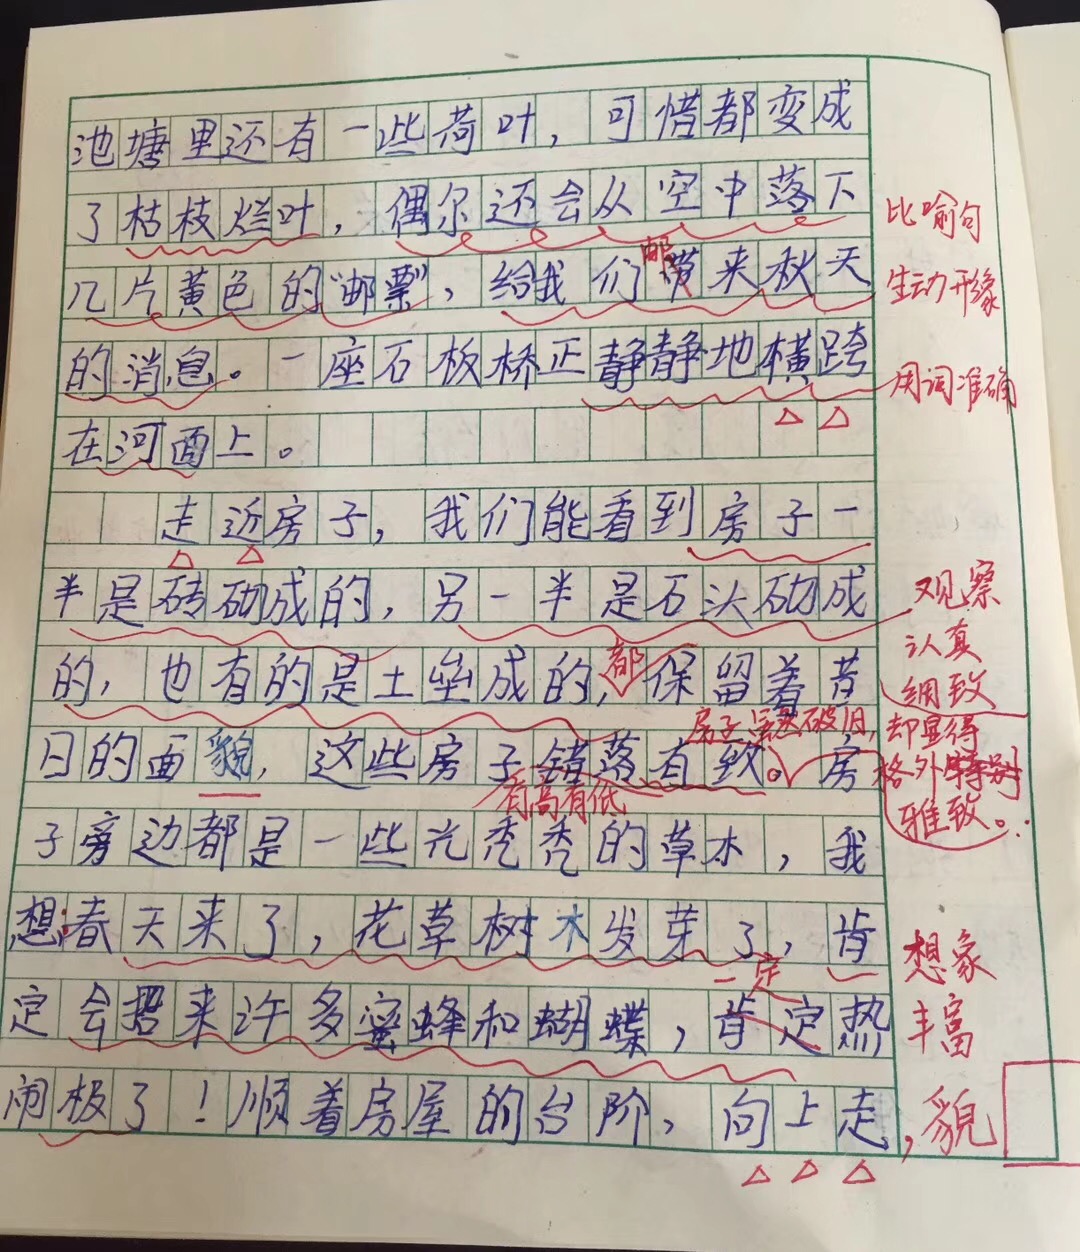 池塘里还有一些荷叶，可惜都变成
了枯枝烂叶，偶尔还会从空中落下
比喻句
邮
几片黄色的"邮票"，给我们带来秋天
生动形象
的消息。一座石板桥正静静地横跨
用词准确
在河面上。
走近房子，我们能看到房子一
半是砖砌成的，另一半是石头砌成
观察
认真
细致
都
的，也有的是土垒成的，保留着昔
房子虽然破旧，却显得
格外特别
雅致。
日的面貌，这些房子错落有致。房
有高有低
子旁边都是一些光秃秃的草木，我
想：春天来了，花草树木发芽了，肯
想象
丰富
一定
定会招来许多蜜蜂和蝴蝶，肯定热
闹极了！顺着房屋的台阶，向上走，
貌